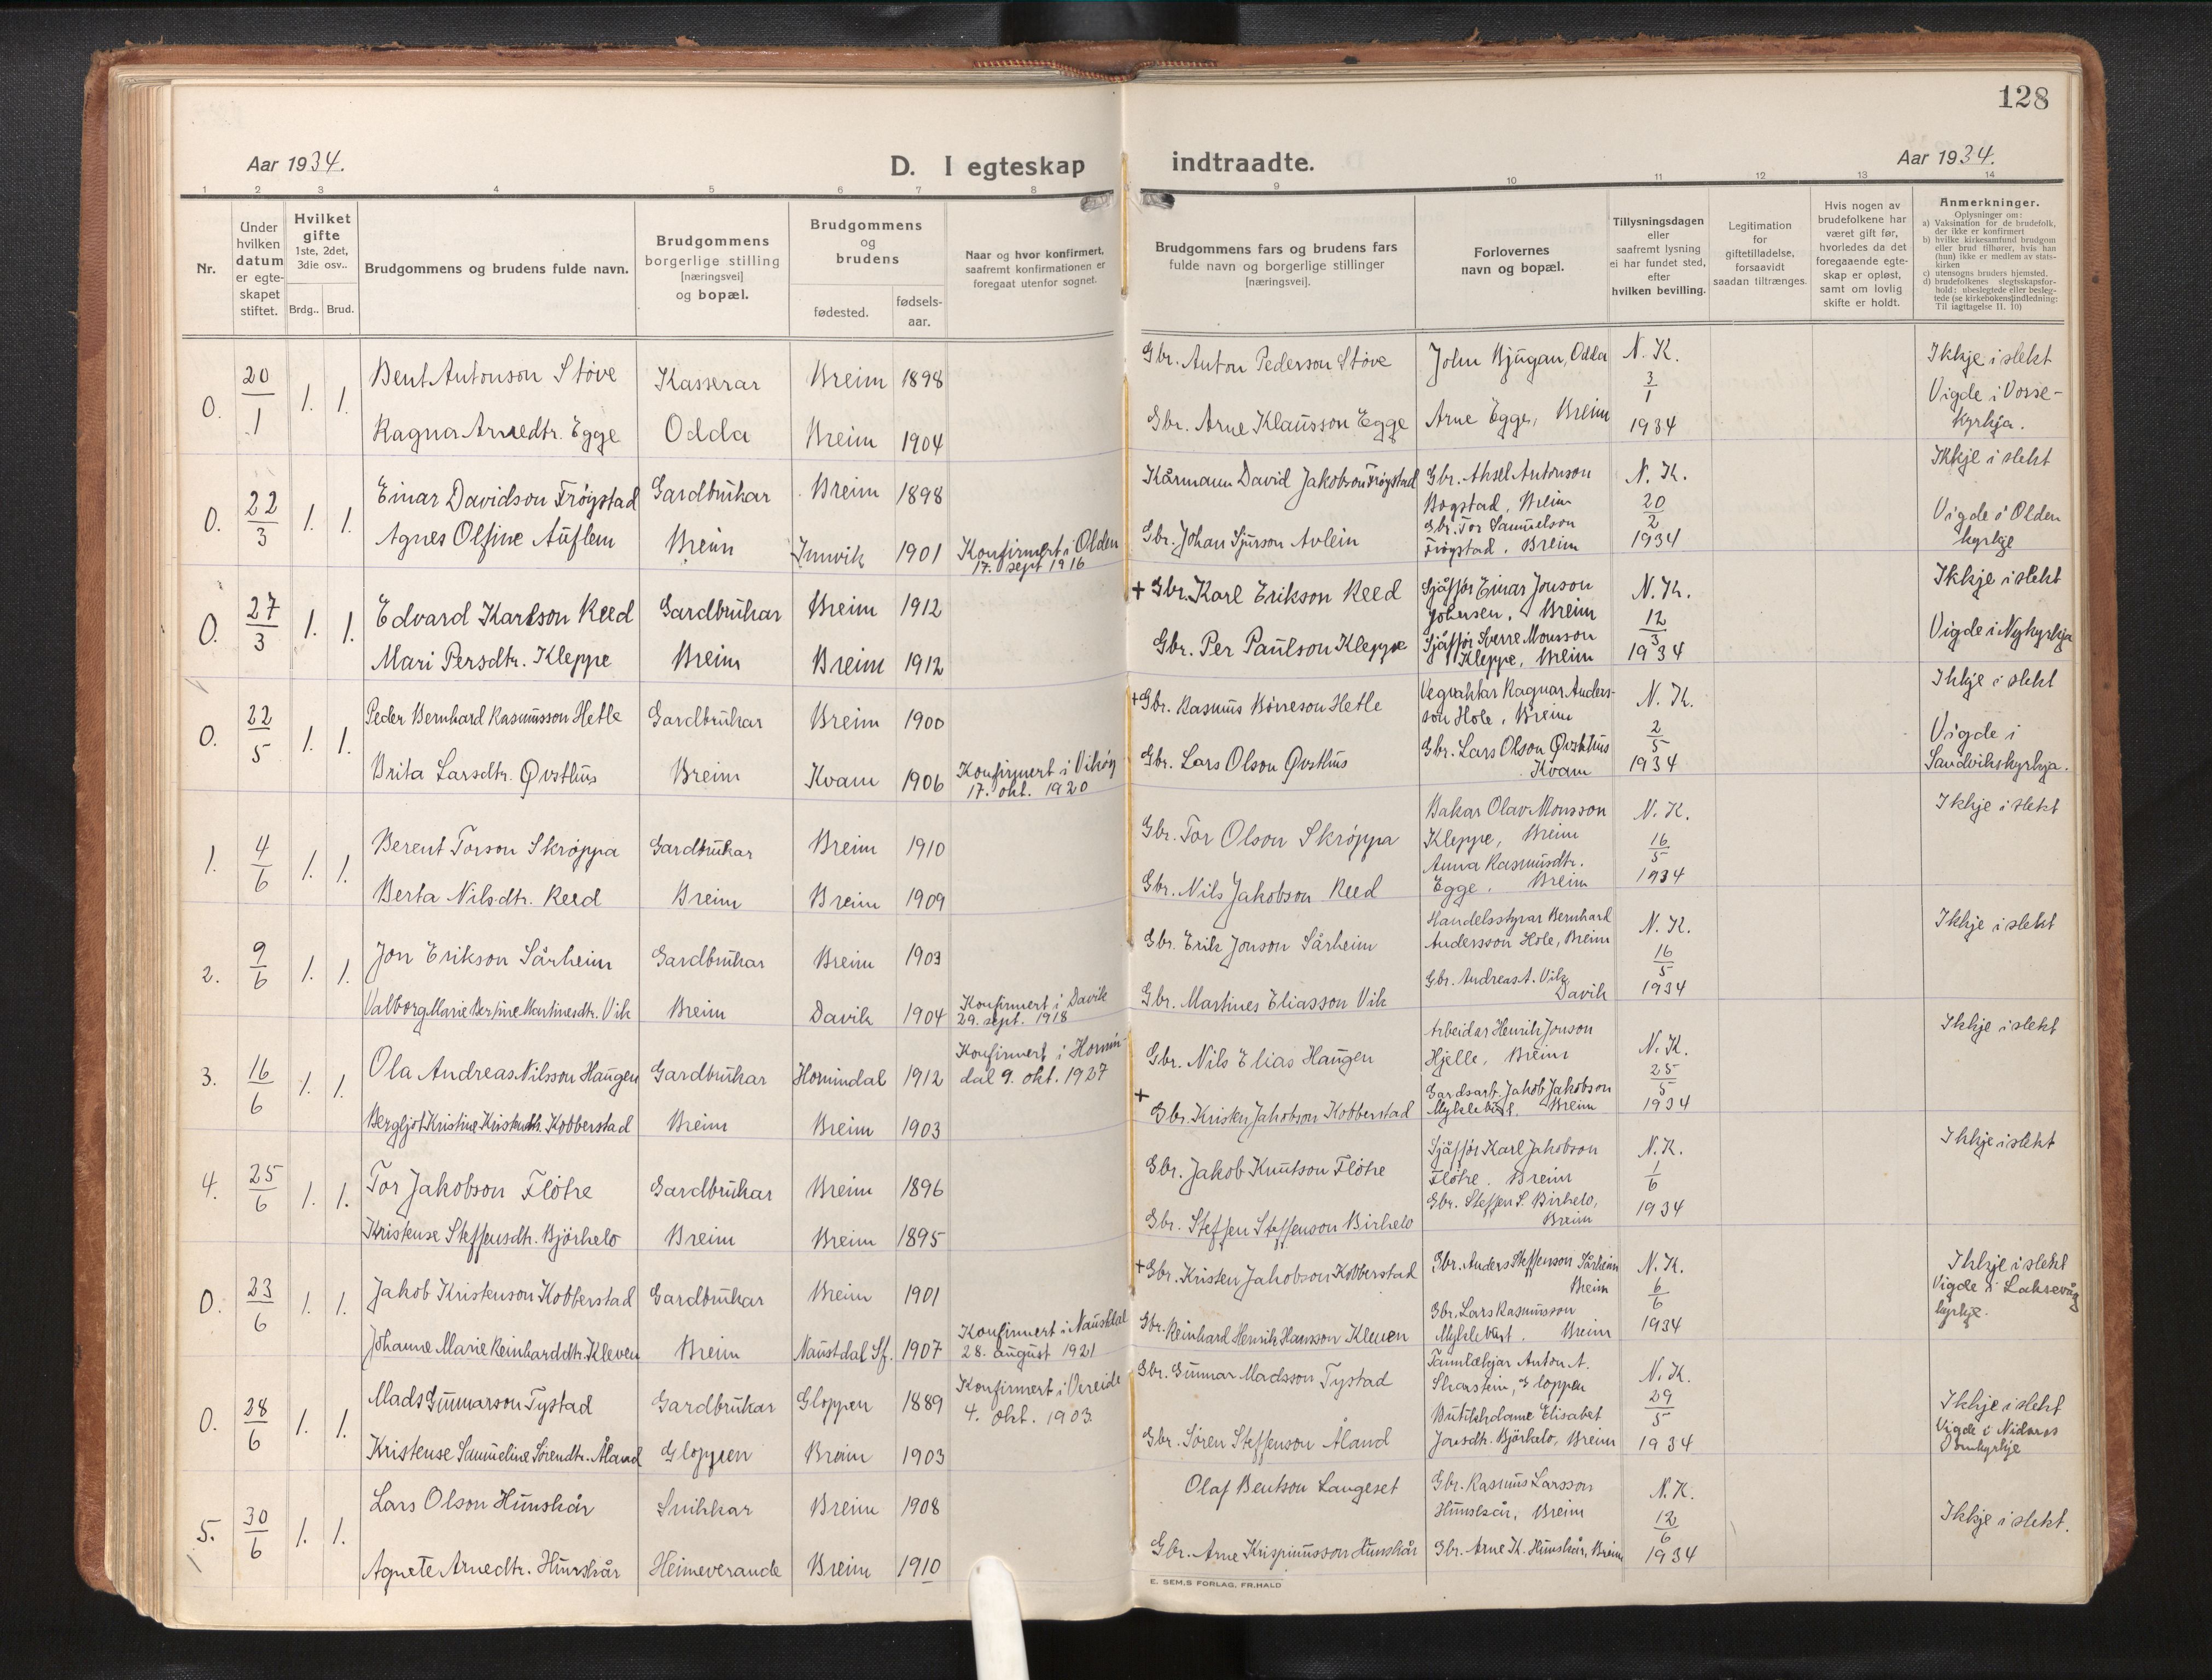 128
Aar 1934.
D. I egteskap indtraadte.
Aar 1934.
1 2 3 4 5 6 7 8 9 10 11 12 13 14
Nr.
Under hvilken datum er egteskapet stiftet.
Hvilket gifte 1ste, 2det, 3die osv..
Brdg.. Brud.
Brudgommens og brudens fulde navn.
Brudgommens borgerlige stilling [næringsvei] og bopæl.
Brudgommens og brudens
fødested.
fødsels-aar.
Naar og hvor konfirmert, saafremt konfirmationen er foregaat utenfor sognet.
Brudgommens fars og brudens fars fulde navn og borgerlige stillinger [næringsvei].
Forlovernes navn og bopæl.
Tillysningsdagen eller saafremt lysning ei har fundet sted, efter hvilken bevilling.
Legitimation for giftetilladelse, forsaavidt saadan tiltrænges.
Hvis nogen av brudefolkene har været gift før, hvorledes da det foregaaende egteskap er opløst, samt om lovlig skifte er holdt.
Anmerkninger.
Oplysninger om:
a) Vaksination for de brudefolk, der ikke er konfirmert
b) hvilke kirkesamfund brudgom eller brud tilhører, hvis han (hun) ikke er medlem av statskirken
c) utensogns bruders hjemsted.
d) brudefolkenes slegtsskapsforhold: ubeslegtede eller beslegtede (se kirkebokens indledning: Til iagttagelse II. 10)
0. 20/1 1. 1. Bent Antonson Støve Kasserar Breim 1898 Gbr. Anton Pederson Støve John Bjugan, Odda N. K. 3/1 1934 Ikkje i slekt
Ragna Arnedtr. Egge Odda Breim 1904 Gbr. Arne Klausson Egge Arne Egge, Breim Vigde i Vosse-kyrkja.
0. 22/3 1. 1. Einar Davidson Frøystad Gardbrukar Breim 1898 Kårmann David Jakobson Frøystad Gbr. Aksel Antonson Bogstad, Breim N. K. 20/2 1934 Ikkje i slekt
Agnes Olfine Auflem Breim Innvik 1901 Konfirmert i Olden 17. sept 1916 Gbr. Johan Sjurson Avlein Gbr. Tor Samuelson Frøystad, Breim Vigde i Olden kyrkje
0. 27/3 1. 1. Edvard Karlson Reed Gardbrukar Breim 1912 + Gbr. Karl Erikson Reed Sjåffør Einar Jonson Breim N. K. 12/3 1934 Ikkje i slekt
Mari Persdtr. Kleppe Breim Breim 1912 Gbr. Per Paulson Kleppe Sjåffør Sverre Monsson Kleppe, Breim Vigde i Nykyrkja
0. 22/5 1. 1. Peder Bernhard Rasmusson Hetle Gardbrukar Breim 1900 + Gbr. Rasmus Børreson Hetle Vegvaktar Ragnar Anders-son Hole, Breim N. K. 2/5 1934 Ikkje i slekt
Brita Larsdtr. Øvsthus Breim Kvam 1906 Konfirmert i Vikøy 17. okt. 1920 Gbr. Lars Olson Øvsthus Gbr. Lars Olson Øvsthus Kvam Vigde i Sandvikskyrkja.
1. 4/6 1. 1. Berent Torson Skrøppa Gardbrukar Breim 1910 Gbr. Tor Olson Skrøppa Bakar Olav Monsson Kleppe, Breim N. K. 16/5 1934 Ikkje i slekt
Berta Nilsdtr. Reed Breim Breim 1909 Gbr. Nils Jakobson Reed Anna Rasmusdtr. Egge. Breim
2. 9/6 1. 1. Jon Erikson Sårheim Gardbrukar Breim 1903 Gbr. Erik Jonson Sårheim Handelsstyrar Bernhard Andersson Hole, Breim N. K. 16/5 1934 Ikkje i slekt
Valborg Marie Bertine Martinesdtr. Vik Breim Davik 1904 Konfirmert i Davik 29. sept. 1918 Gbr. Martines Eliasson Vik Gbr. Andreas A. Vik, Davik
3. 16/6 1. 1. Ola Andreas Nilsson Haugen Gardbrukar Hornindal 1912 Konfirmert i Hornin-dal 9. okt. 1927 Gbr. Nils Elias Haugen Arbeidar Henrik Jonson Hjelle, Breim N. K. 25/5 1934 Ikkje i slekt
Bergljot Kristine Kristendtr. Kobberstad Breim Breim 1903 + Gbr. Kristen Jakobson Kobberstad Gardsarb. Jakob Jakobson Myklebust. Breim
4. 25/6 1. 1. Tor Jakobson Fløtre Gardbrukar Breim 1896 Gbr. Jakob Knutson Fløtre Sjåffør Karl Jakobson Fløtre. Breim N. K. 1/6 1934 Ikkje i slekt
Kristense Steffensdtr. Bjørhelo Breim Breim 1895 Gbr. Steffen Steffenson Birkelo Gbr. Steffen S. Birkelo, Breim
0. 23/6 1. 1. Jakob Kristenson Kobberstad Gardbrukar Breim 1901 + Gbr. Kristen Jakobson Kobberstad Gbr. Anders Steffenson Sårheim Breim N. K. 6/6 1934 Ikkje i slekt
Johanne Marie Reinharddtr. Kleven Breim Naustdal Sf. 1907 Konfirmert i Naustdal 28. august 1921 Gbr. Reinhard Henrik Hansson Kleven Gbr. Lars Rasmusson Myklebust. Breim Vigde i Laksevåg kyrkje.
0. 28/6 1. 1. Mads Gunnarson Tystad Gardbrukar Gloppen 1889 Konfirmert i Vereide 4. okt. 1903. Gbr. Gunnar Madsson Tystad Tannlækjar Anton A. Skarstein, Gloppen N. K. 29/5 1934 Ikkje i slekt
Kristense Samueline Sørendtr. Åland Gloppen Breim 1903 Gbr. Søren Steffenson Åland Butikkdame Elisabet Jonsdtr. Bjørhelo, Breim Vigde i Nidaros Domkyrkje
5. 30/6 1. 1. Lars Olson Hunskår Snikkar Breim 1908 Olaf Bentson Langeset Gbr. Rasmus Larsson Hunskår, Breim N. K. 12/6 1934 Ikkje i slekt.
Agnete Arnedtr. Hunskår Heimeverande Breim 1910 Gbr. Arne Krispinusson Hunskår Gbr. Arne K. Hunskår, Breim
E. SEM.S FORLAG, FR.HALD